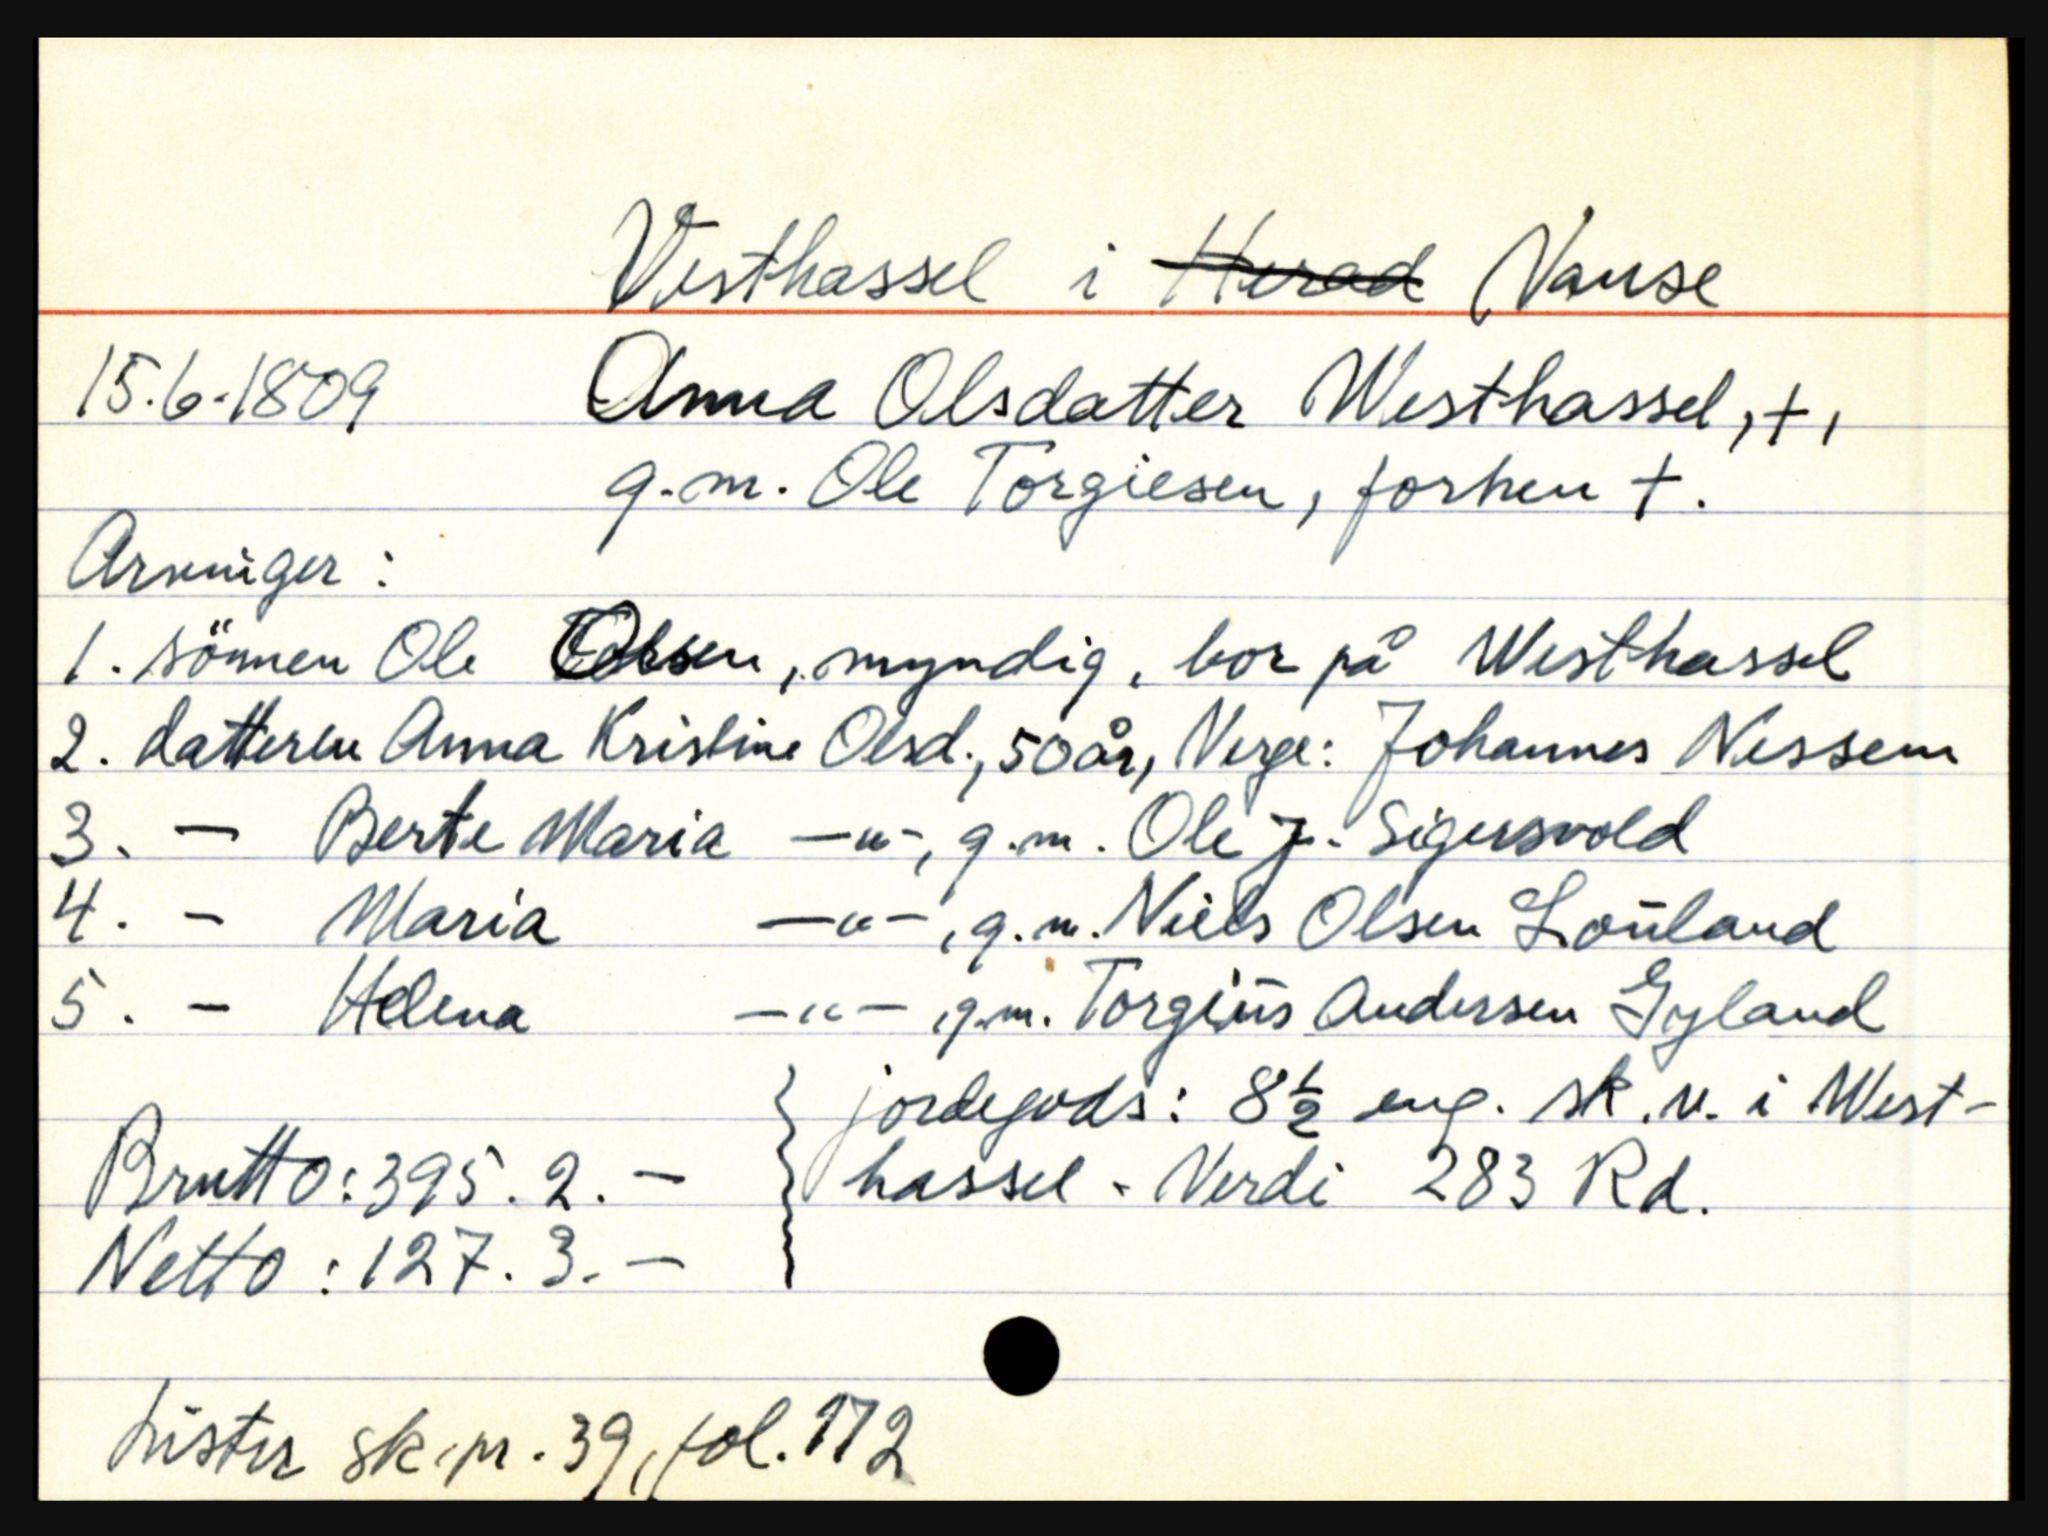 Vesthassel i Herad Vanse
15.6.1809 Anna Olsdatter Westhassel, +,
g.m. Ole Torgiesen, forhen +.
Arvinger:
1. sönnen Ole Olsen, myndig, bor på Westhassel
2. datteren Anna Kristine Olsd., 50 år, Verge: Johannes Nessem
3. — Berte Maria —"—, g.m. Ole J. Sigersvold
4. — Maria —"—, g.m. Niels Olsen Louland
5. — Helena —"—, g.m. Torgius Andersen Gyland
jordegods: 8½ eng. sk. v. i West-
Brutto: 395. 2. — hassel - Verdi 283 Rd.
Netto: 127. 3. —
Lister sk.pr. 39, fol. 172